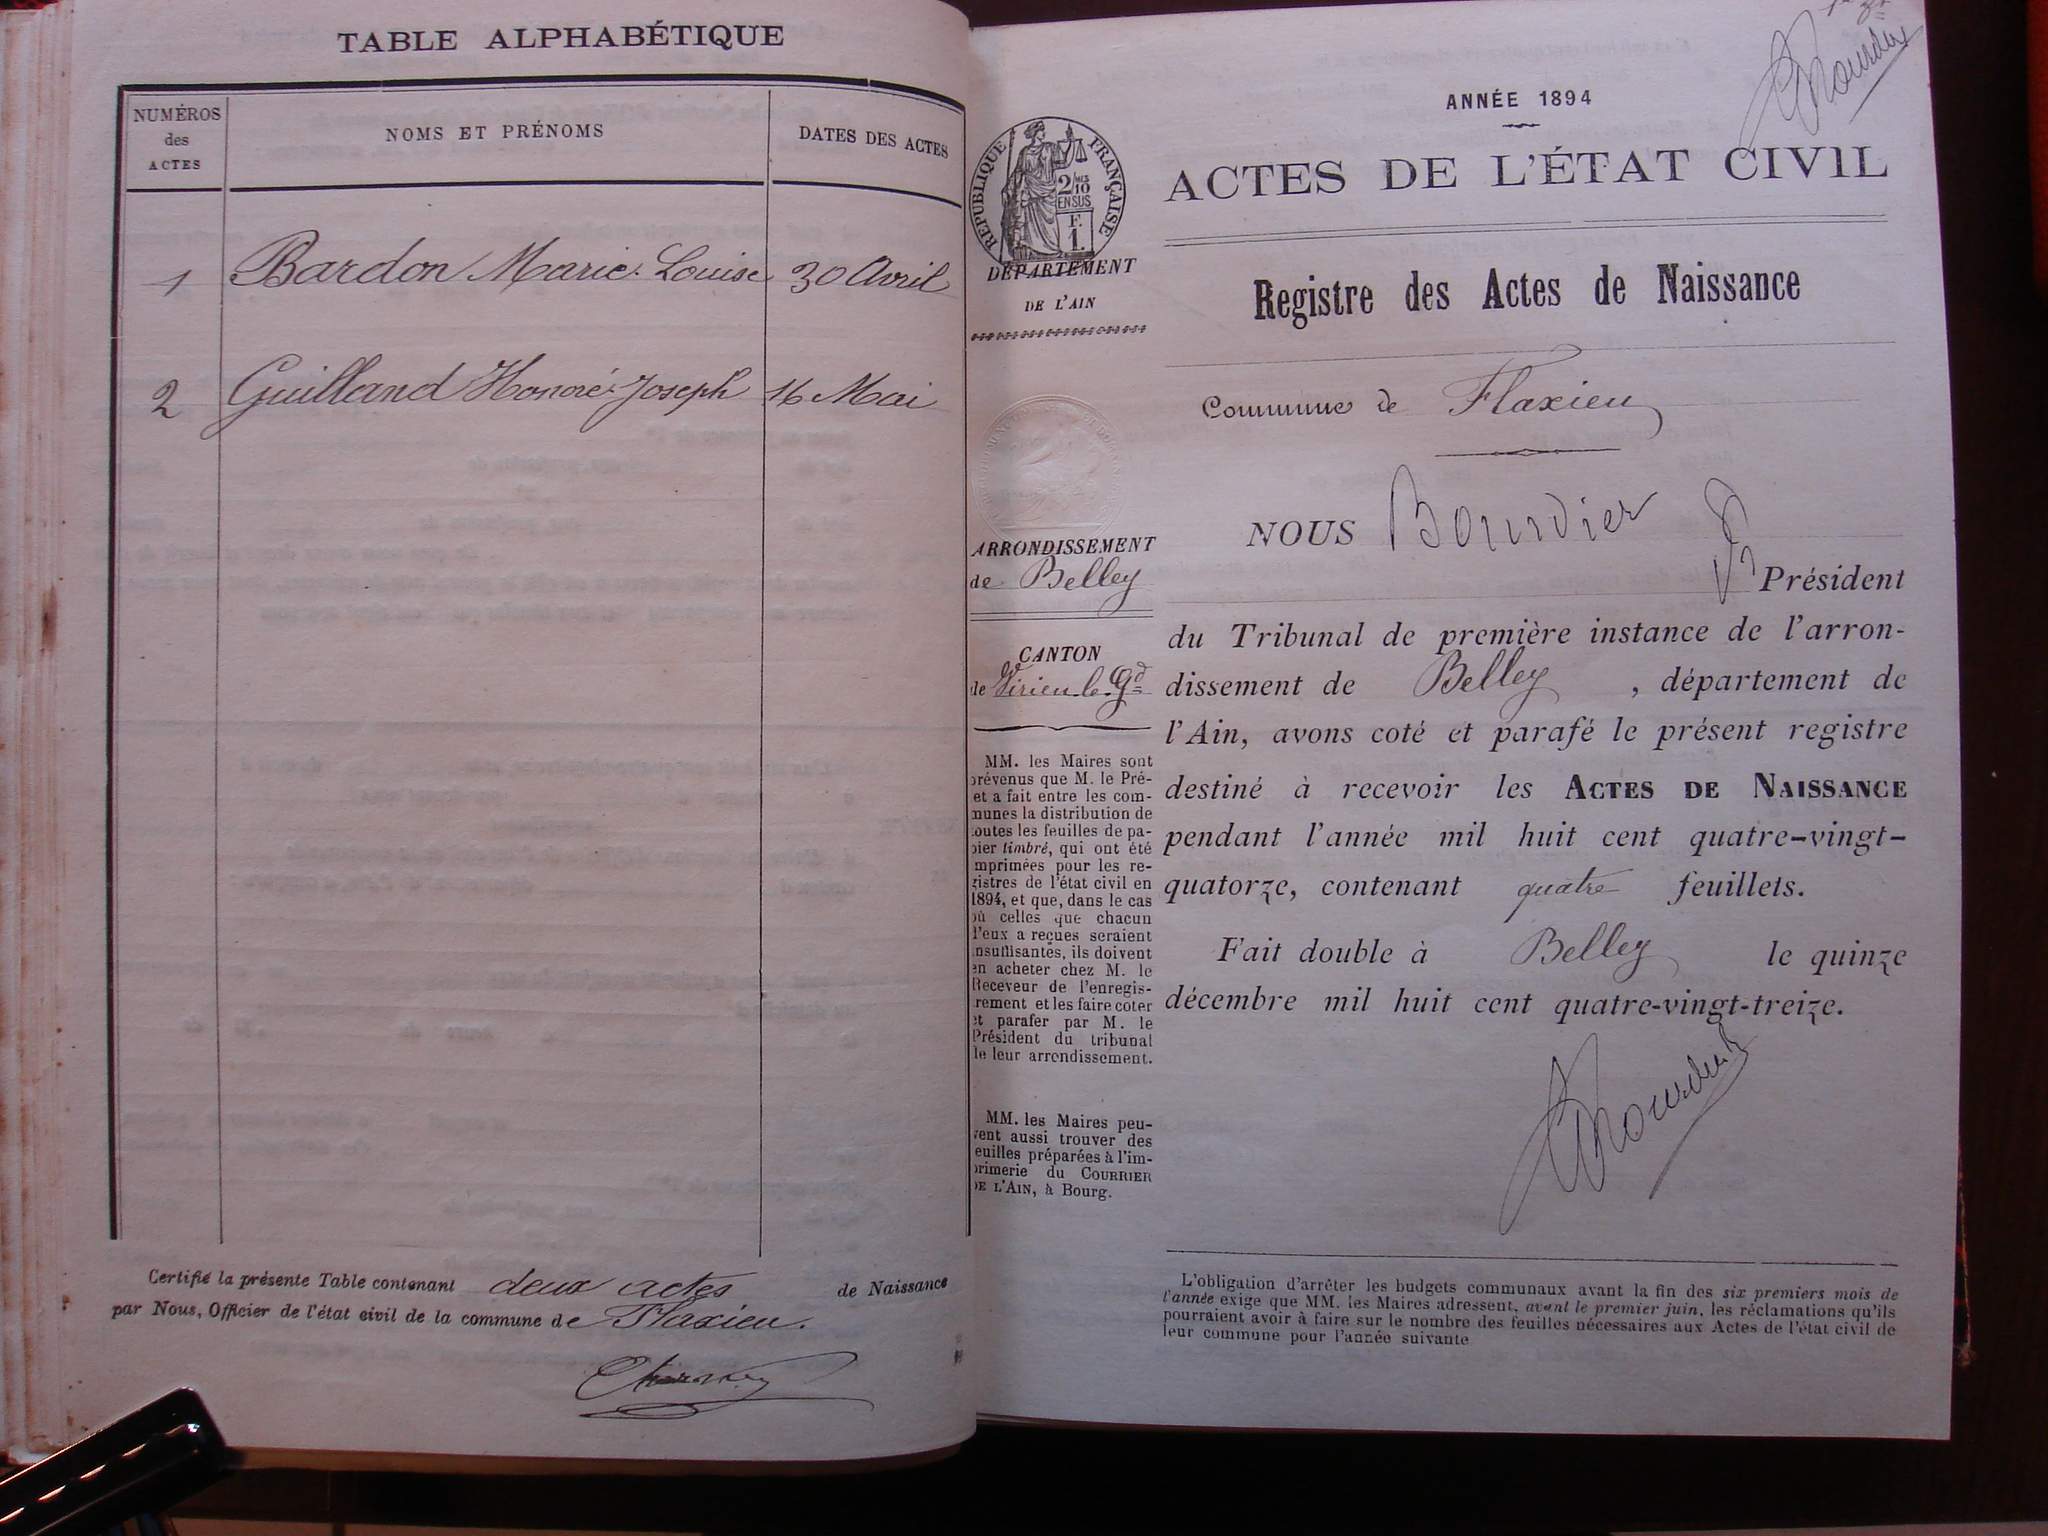 TABLE ALPHABÉTIQUE
NUMÉROS
des
ACTES
NOMS ET PRÉNOMS
DATES DES ACTES
1 Bardon Marie-Louise 30 Avril
2 Guilland Honoré-Joseph 16 Mai
Certifié la présente Table contenant deux actes de Naissance
par Nous, Officier de l'état civil de la commune de Flaxieu.
RÉPUBLIQUE FRANÇAISE
2/10 MES
EN SUS
F.
1.
DÉPARTEMENT
DE L'AIN
ARRONDISSEMENT
de Belley
CANTON
de Virieu-le-Gd
MM. les Maires sont
prévenus que M. le Pré-
et a fait entre les com-
munes la distribution de
toutes les feuilles de pa-
pier timbré, qui ont été
imprimées pour les re-
gistres de l'état civil en
1894, et que, dans le cas
où celles que chacun
d'eux a reçues seraient
insuffisantes, ils doivent
en acheter chez M. le
Receveur de l'enregis-
rement et les faire coter
et parafer par M. le
Président du tribunal
de leur arrondissement.
MM. les Maires peu-
vent aussi trouver des
feuilles préparées à l'im-
primerie du COURRIER
DE L'AIN, à Bourg.
ANNÉE 1894
ACTES DE L'ÉTAT CIVIL
Registre des Actes de Naissance
Commune de Flaxieu
NOUS Bourdier
Président
du Tribunal de première instance de l'arron-
dissement de Belley, département de
l'Ain, avons coté et parafé le présent registre
destiné à recevoir les ACTES DE NAISSANCE
pendant l'année mil huit cent quatre-vingt-
quatorze, contenant quatre feuillets.
Fait double à Belley le quinze
décembre mil huit cent quatre-vingt-treize.
L'obligation d'arrêter les budgets communaux avant la fin des six premiers mois de
l'année exige que MM. les Maires adressent, avant le premier juin, les réclamations qu'ils
pourraient avoir à faire sur le nombre des feuilles nécessaires aux Actes de l'état civil de
leur commune pour l'année suivante